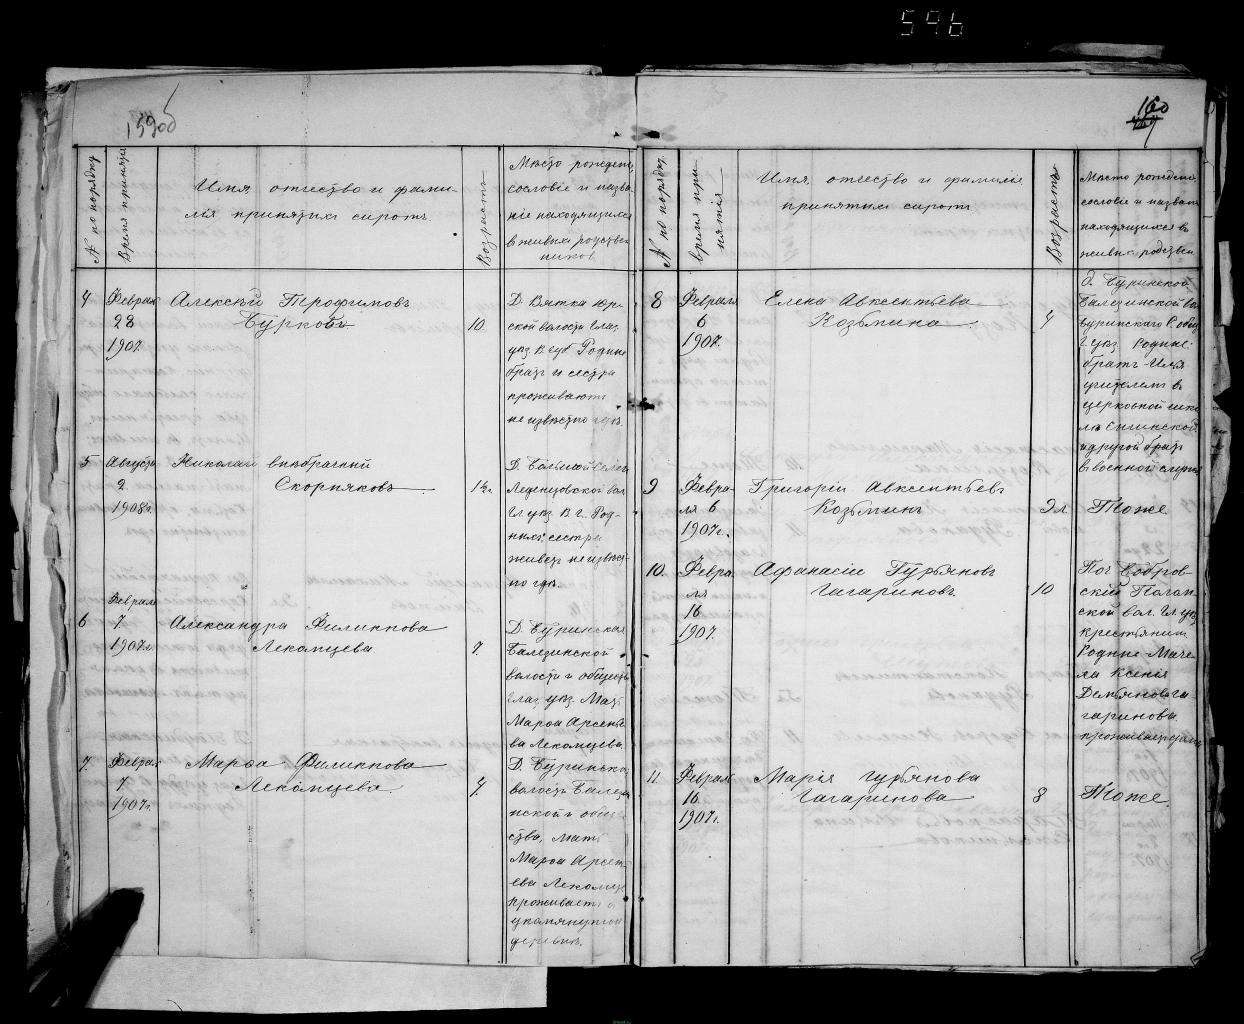 596
159об
№ по порядку
Время принятія
Имя, отчество и фами-
лія принятых сирот.
Возраст
Место рожден,
сословіе и назва-
ніе находящихся
в живых родствен-
ников
4
Феврал
28
1907.
Алексѣй Трофимовъ
Бурковъ
10.
Д. Вятка Юр-
ской волости Глаз.
уѣз. В губ Родные
брат и сестра
проживают
не извѣстно гдѣ.
5
Августа
2.
1908 г.
Николай внѣбрачный
Скорняковъ
1½.
Д.
Леденцовской вол
Гл уѣз. В г. Род-
ных: сестра
живет неизвѣст-
но гдѣ.
6
Феврал
7.
1907 г.
Александра Филиппова
Лекомцева
7.
Д. Буринская
Балезинской
волости и обществ
Глаз. уѣз. Мать
Марѳа Арсень-
ва Лекомцева.
7.
Феврал
7
1907 г.
Марѳа Филиппова
Лекомцева
4.
Д. Буринска
волости Балез
инской и обще
ства, Мать
Марѳа Арсен-
ева Лекомц
проживает в
упомянутой
деревнѣ.
160
№ по порядку.
время при-
нятія
Имя, отчество и фамиліе
принятых сирот
Возрастъ
Место рожден.
сословіе и назван
находящихся в
живых родствен
8
Февраля
6
1907.
Елена Авксентьева
Козьмина
4
д. Буринской
Балезинской вол
Буринскаго С. общ
Г уѣз. Родные:
братъ Илья
учителем в
церковной шко
ле
и другой брат
в военной службѣ
9
Февра-
ля 6
1907 г.
Григорій Авксентьев
Козьмин
9 л
Тоже.
10.
Февра
ля
16
1907.
Афанасій Гурьяновъ
Гагаринов.
10
Поч. Бобров-
скій Паган-
ской вол. Гл уѣз.
крестьянин
Родные Маче-
ха Ксенія
Демьянова Га-
гаринова,
проживает
11.
Февраля
16.
1907 г.
Марія Гурьянова
Гагаринова
8
Тоже.